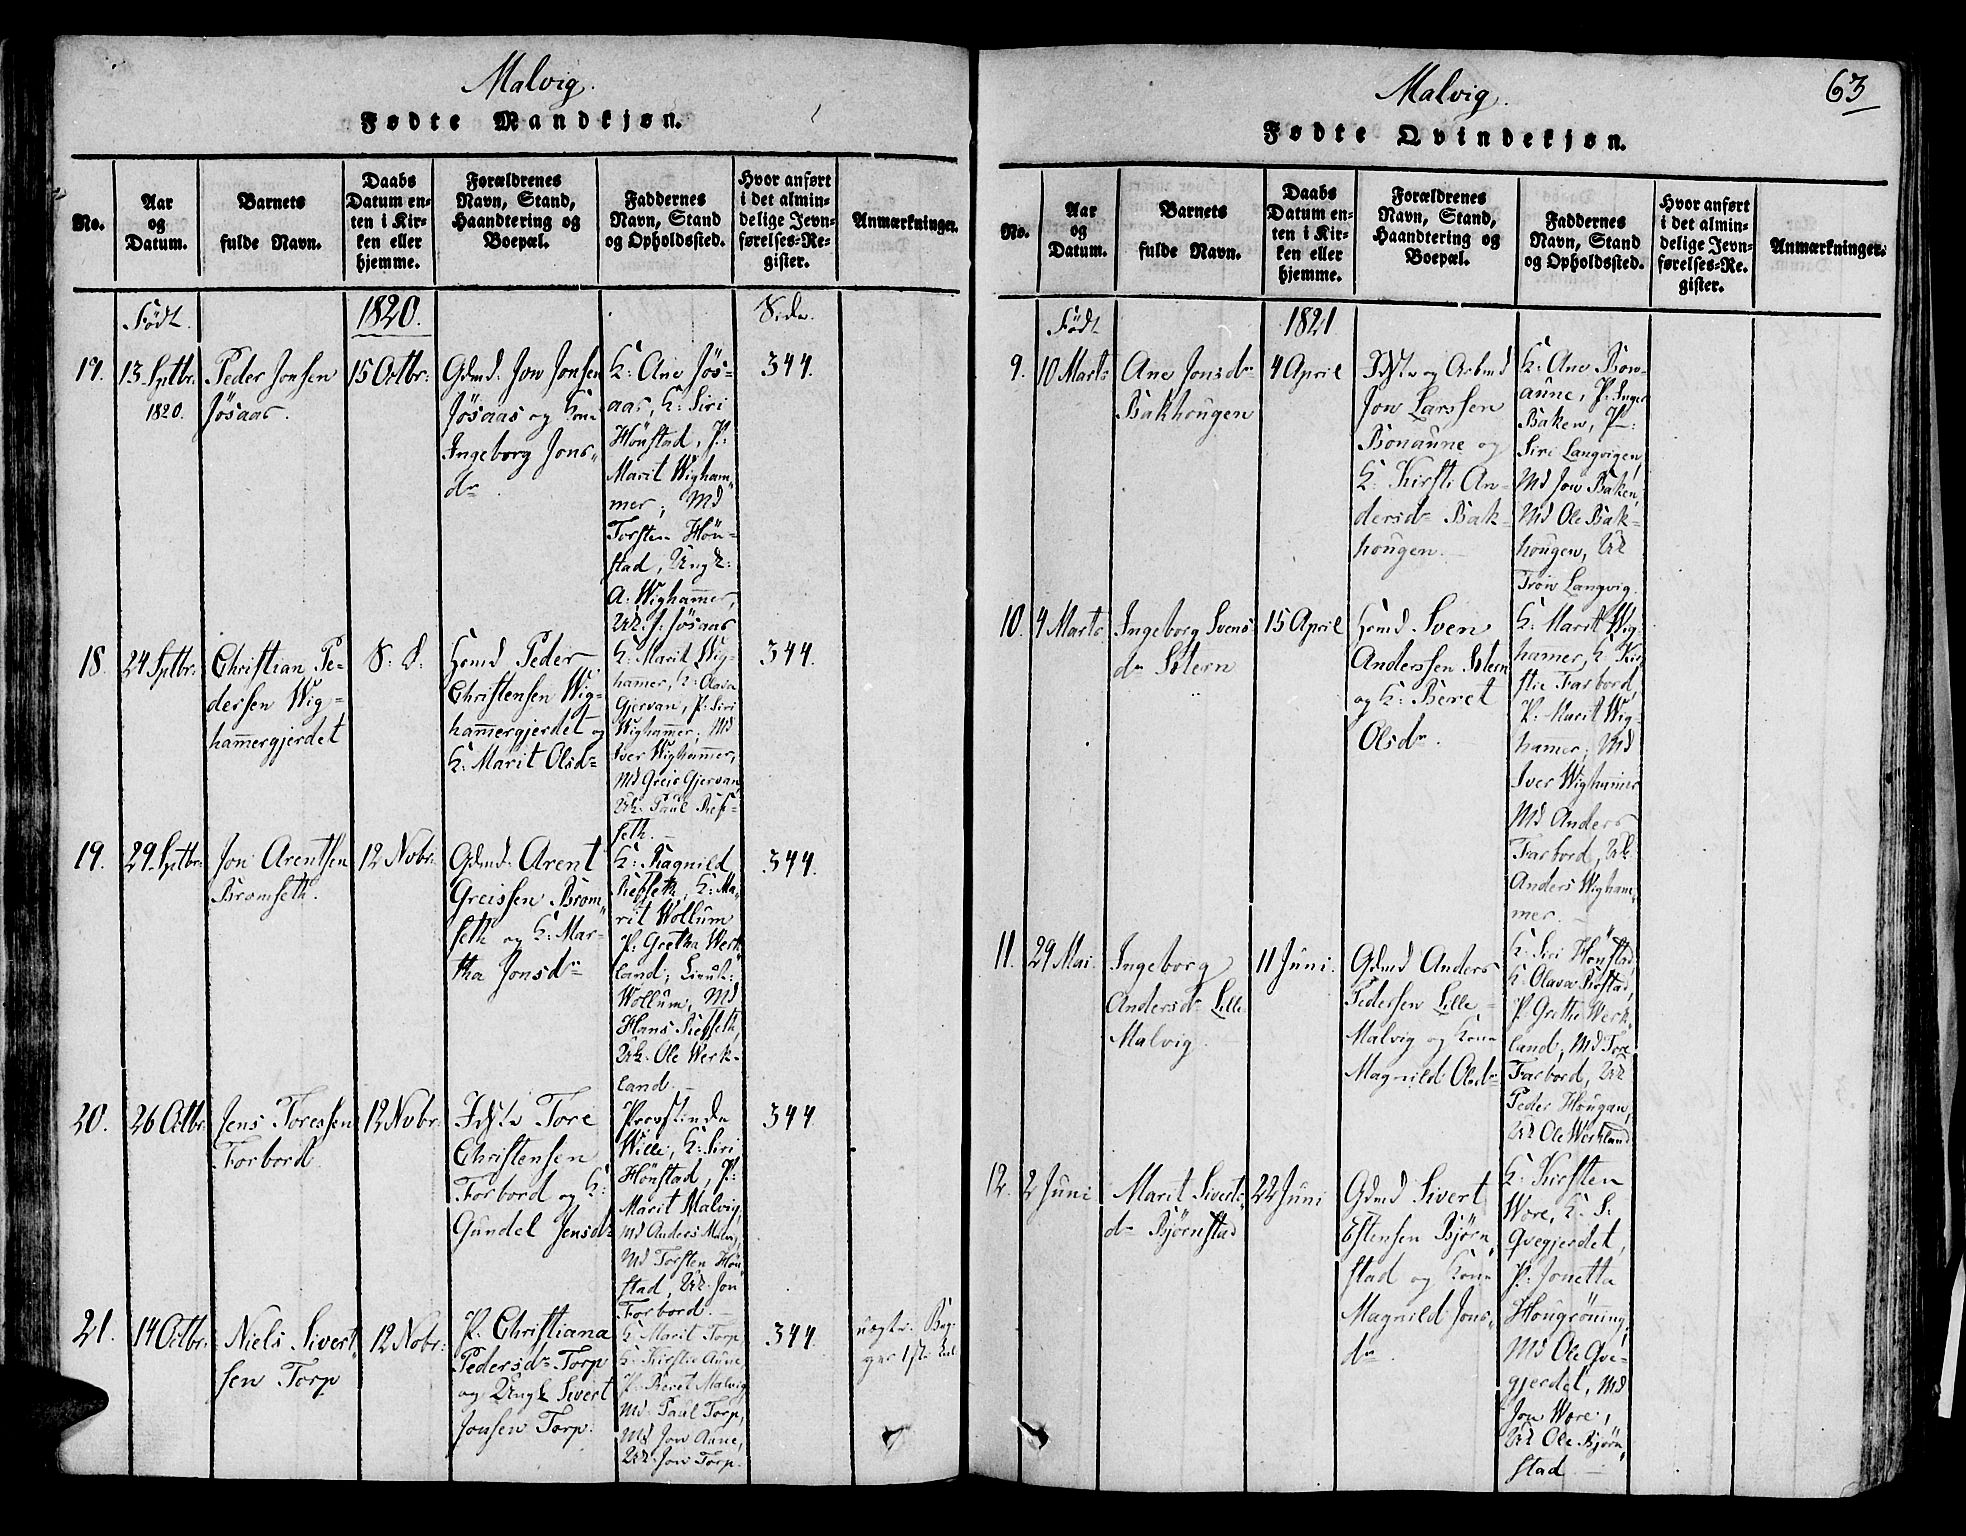 Malvig.
Fødte Mandkjøn.
No.
Aar
og
Datum.
Barnets
fulde Navn.
Daabs
Datum en-
ten i Kir-
ken eller
hjemme.
Forældrenes
Navn, Stand,
Haandtering og
Boepæl.
Faddernes
Navn, Stand
og Opholdssted.
Hvor anført
i det almin-
delige Jevn-
førelses-Re-
gister.
Anmærkninger.
Født.
1820.
Side.
17.
13 Sptbr:
1820.
Peder Jonsen
Jösaas.
15 Octbr:
Gdmd: Jon Jonsen
Jösaas og Kone
Ingeborg Jons-
dr
K: Ane Jös-
aas, K: Siri
Hönstad, P:
Marit Wigham-
mer, Md
Torsten Hön-
stad, Ungk:
A: Wighammer,
Uk. J. Jösaas
344.
18.
24 Sptbr:
Christian Pe-
dersen Wig-
hammergjerdet
S: D:
Hmd Peder
Christensen Wig-
hammergjerdet og
K: Marit Olsdr
K: Marit Wig-
hammer, K: Olava
Gjervan, P: Siri
Wighammer, Md
Iver Wighammer,
Md Greis Gjervan
Uk: Paul
seth.
344.
19.
29 Sptbr:
Jon Arentsen
Bromseth.
12 Nobr:
Gdmd: Arent
Greissen Brom-
seth og K: Mar-
tha Jonsdr
K: Ragnild
K: Ma-
rit Wollum
P: Grethe Werk-
land, Lieut:
Wollum, Md
Hans
Uk: Ole Werk-
land.
344.
20.
26 Octbr:
Jens Toressen
Forbord.
12 Nobr:
Tore
Christensen
Forbord og K:
Gundel Jensdr
Provstinde
Wille, K: Siri
Hönstad, P:
Marit Malvig,
Md Anders Malv,
Md Torsten Hön
stad, Uk: Jon
Forbord.
344.
21.
14 Octbr:
Niels Sivert-
sen Torp
12 Nobr:
P. Christiana
Pedersdr Torp
og Ungk Sivert
Jonsen Torp.
K: Marit Torp
K: Kirstie Aune,
P: Beret Malvig
Md: Paul Torp,
Md Jon Aune,
Uk: Jon Torp.
344.
uegte: Beg-
ges 1ste
Malvig.
63
Fødte Qvindekjøn.
No.
Aar
og
Datum.
Barnets
fulde Navn.
Daabs
Datum en-
ten i Kir-
ken eller
hjemme.
Forældrenes
Navn, Stand,
Haandtering og
Boepæl.
Faddernes
Navn, Stand
og Opholdssted.
Hvor anført
i det almin-
delige Jevn-
førelses-Re-
gister.
Anmærkninger.
Født
1821
9.
10 Marts
Ane Jonsdr
Bakhougen
4 April
og Arbmd
Jon Larssen
Bonaune og
K: Kirsti An-
dersdr Bak-
hougen.
K: Ane Bon-
aune, P: Inger
Baken, P:
Siri Langvigen,
Md Jon Baken,
Md Ole Bak-
hougen, Uk
Langvig.
10.
4 Marts
Ingeborg Svens
dr Stern
15 April
Hmd Sven
Anderssen Stern
og K: Beret
Olsdr.
K: Marit Wig-
hamer, K: Kir
stie Farbord,
P: Marit Wig-
hamer, Md
Iver Wighammer
Md Anders
Farbord, Uk
Anders Wigham-
mer.
11.
29 Mai.
Ingeborg
Andersdr Lille
Malvig.
11 Juni.
Gdmd Anders
Pedersen Lille-
Malvig og Kone
Magnild Olsdr
K: Siri Hönstad
K: Olava
P: Grethe Werk-
land, Md Tore
Farbord, Uk
Peder Hougan,
Uk Ole Werkland
12.
2 Juni
Marit Siverts-
dr Björnstad
22 Juni
Gdmd Sivert
Estensen Björn-
stad og Kone
Magnild Jons-
dr.
K: Kirsten
Wore, K: S:
Qvegjerdet,
P: Jonetta
Hougrönning,
Md Ole Qve-
gjerdet, Md
Jon Wore,
Uk Ole Björn-
stad